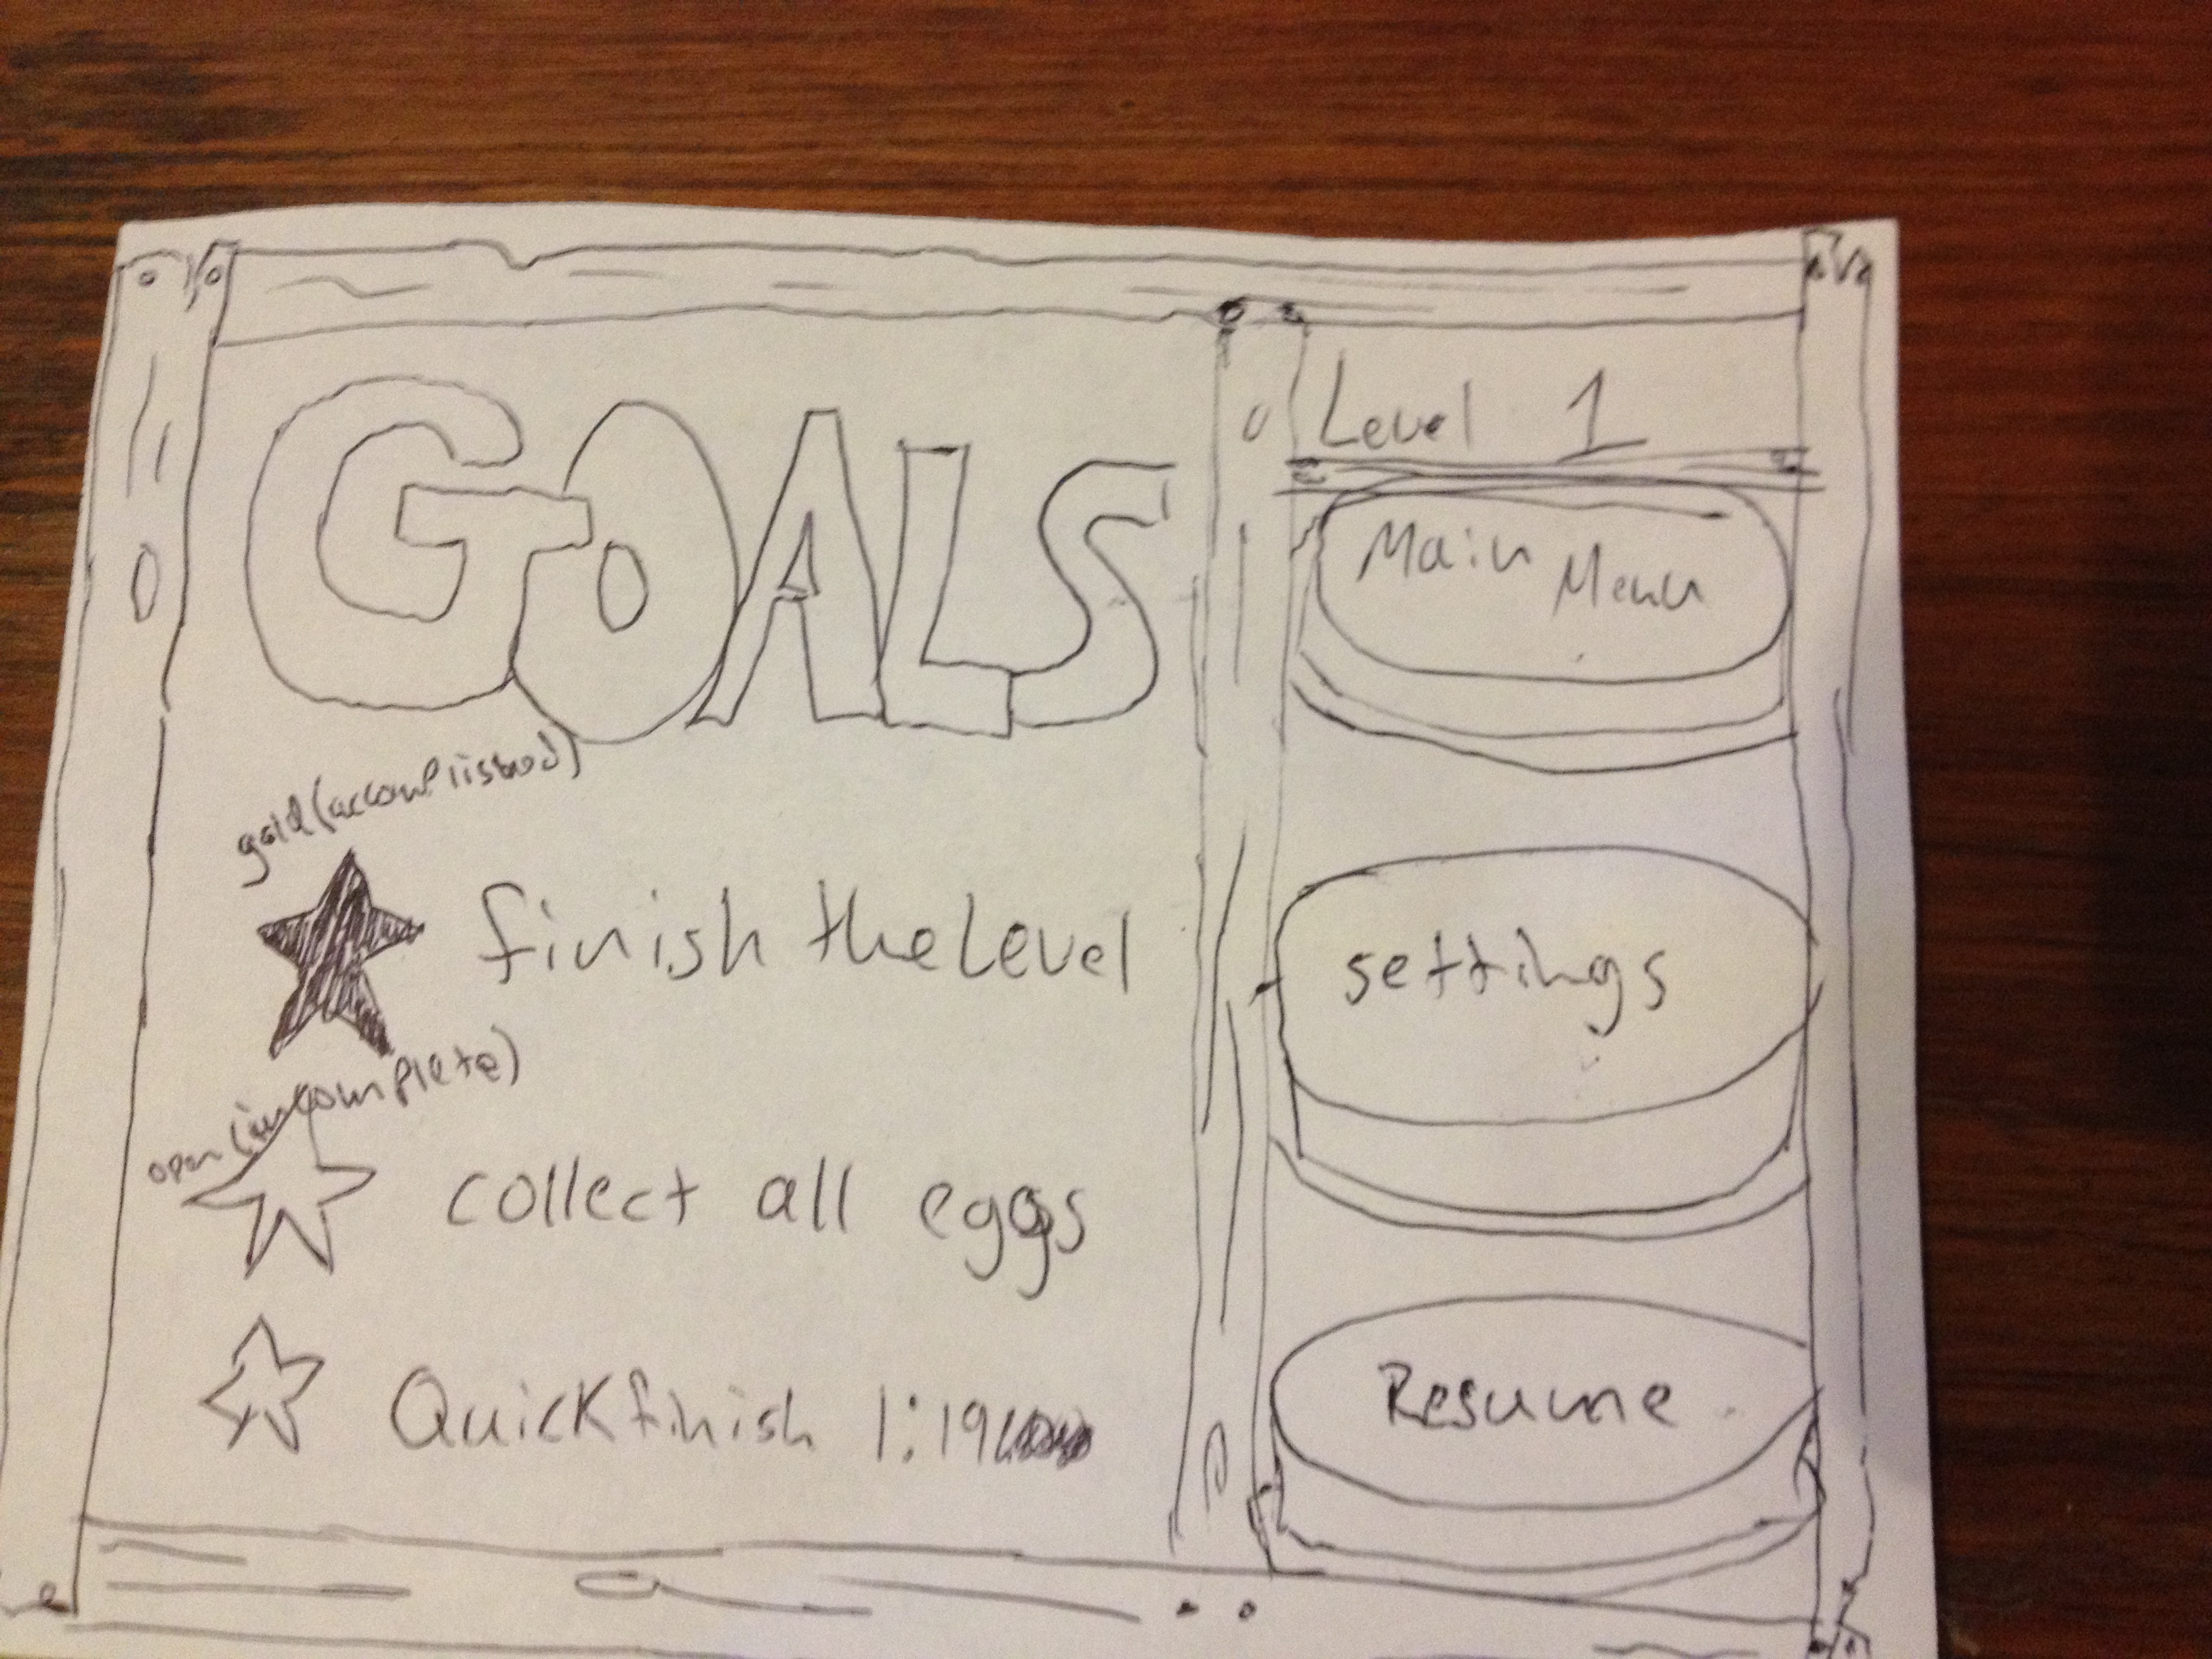 GOALS
gold (accomplished)
finish the Level
open (incomplete)
collect all eggs
Quick finish 1:19
Level 1
Main Menu
settings
Resume